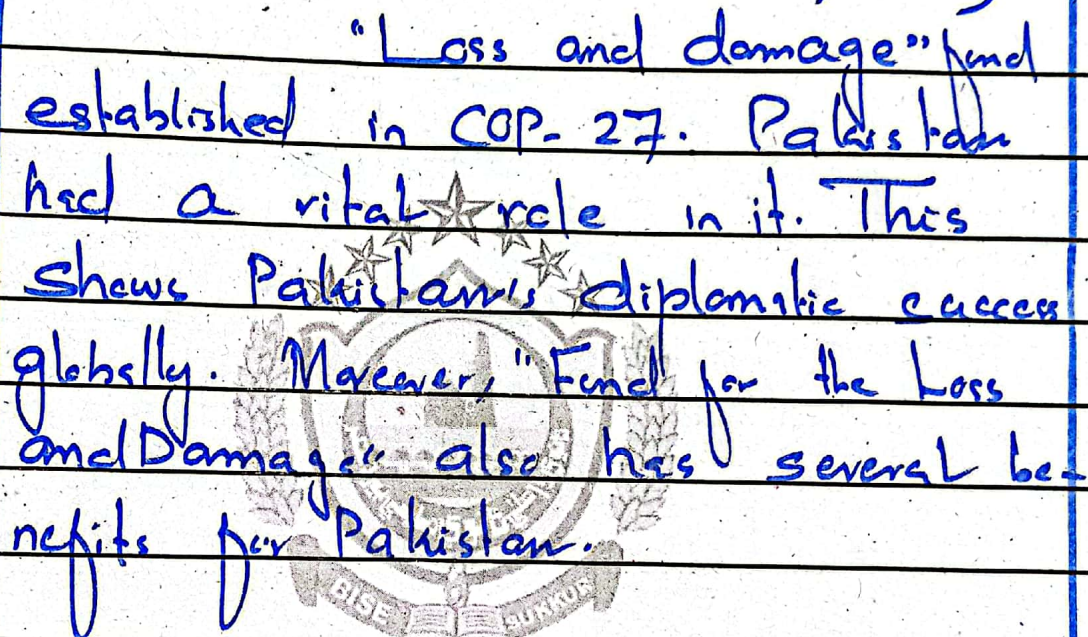 "Loss and damage" fund
established in COP-27. Pakistan
had a vital role in it. This
shows Pakistan's diplomatic success
globally. Moreover, "Fund for the Loss
and Damage" also has several be-
nefits for Pakistan.
BISE SUKKUR